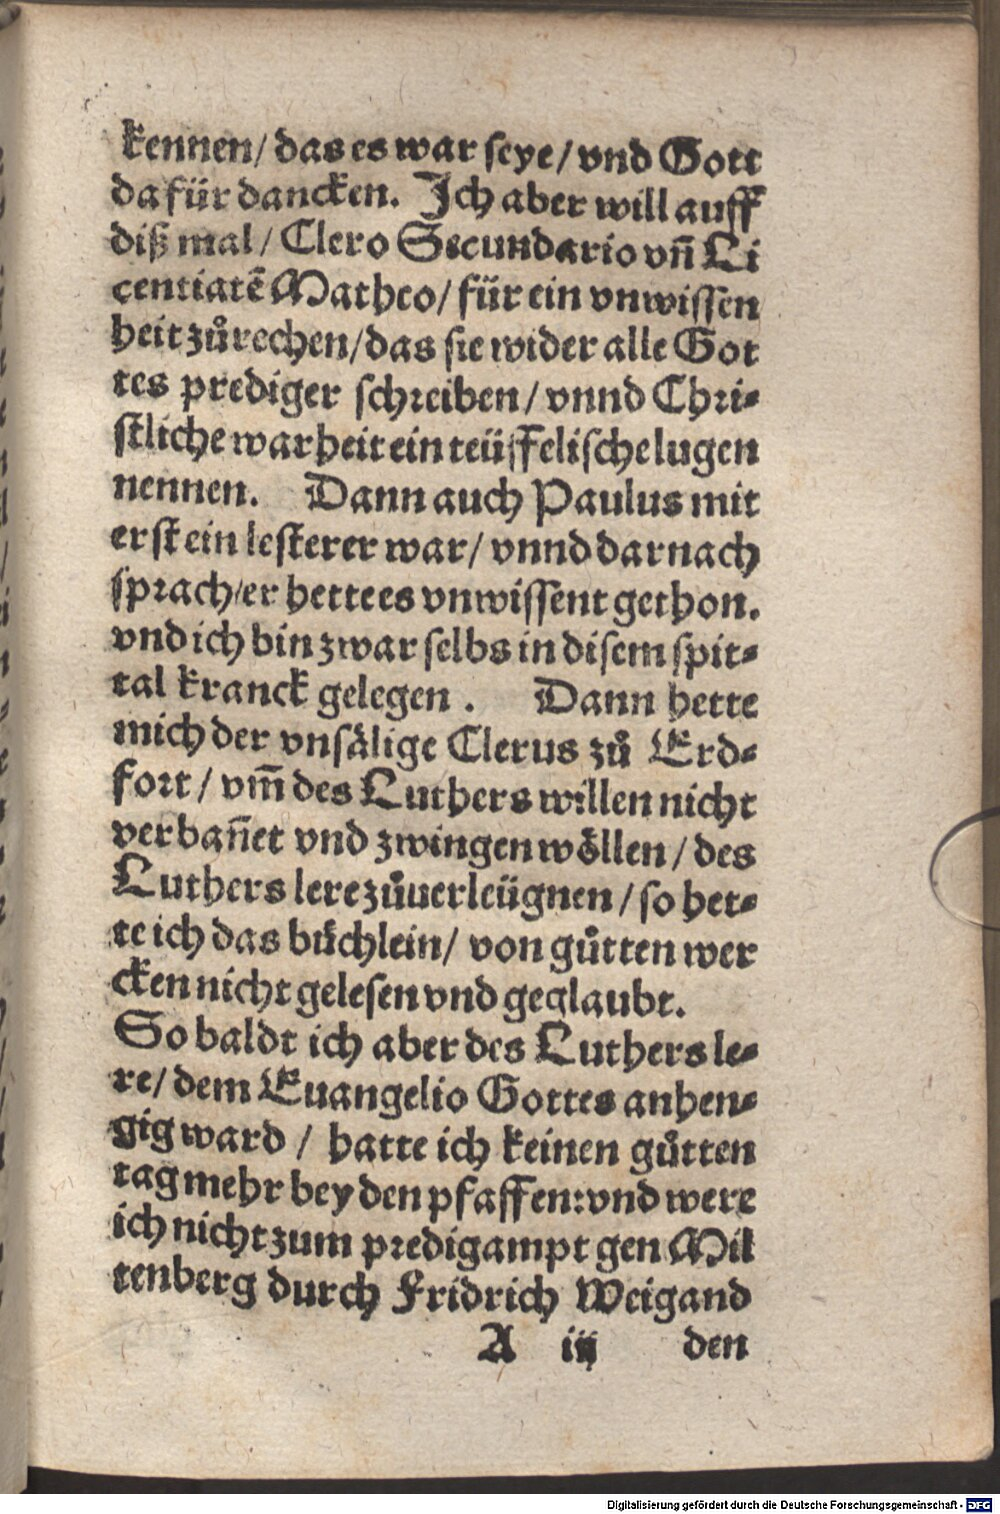 kennen/ das es war seye/ vnd Gott
da für dancken. Ich aber will auff
diß mal/ Clero Secundario vñ Li
centiatē Matheo/ für ein vnwissen
heit zůrechen/ das sie wider alle Got
tes prediger schreiben/ vnnd Chri⸗
stliche warheit ein teüffelische lugen
nennen. Dann auch Paulus mit
erst ein lesterer war/ vnnd darnach
sprach/ er hette es vnwissent gethon.
vnd ich bin zwar selbs in disem spit⸗
tal kranck gelegen. Dann hette
mich der vnsälige Clerus zů Erd⸗
fort/ vm̄ des Luthers willen nicht
verbañet vnd zwingen wöllen/ des
Luthers lere zůuerleügnen/ so het⸗
te ich das bůchlein/ von gůtten wer
cken nicht gelesen vnd geglaubt.
So baldt ich aber des Luthers le⸗
re/ dem Euangelio Gottes anhen⸗
gig ward/ hatte ich keinen gůtten
tag mehr bey den pfaffen: vnd were
ich nicht zum predigampt gen Mil
tenberg durch Fridrich Weigand
A iij den
Digitalisierung gefördert durch die Deutsche Forschungsgemeinschaft - DFG